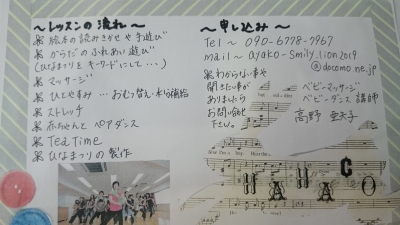 ～レッスンの流れ～
※絵本の読みきかせや手遊び
※からだのふれあい遊び
(ひなまつりをキーワードにして…)
※マッサージ
※ひとやすみ…おむつ替え・水分補給
※ストレッチ
※赤ちゃんとペアダンス
※Tea Time
※ひなまつりの製作
～申し込み～
Tel～ 090-6778-7967
mail～ ayako-smily.lien2019
@docomo.ne.jp
※わからない事や
聞きたい事が
ありましたら
お問い合せ
下さい。
ベビーマッサージ
ベビーダンス 講師
高野 亜矢子
HAHACO